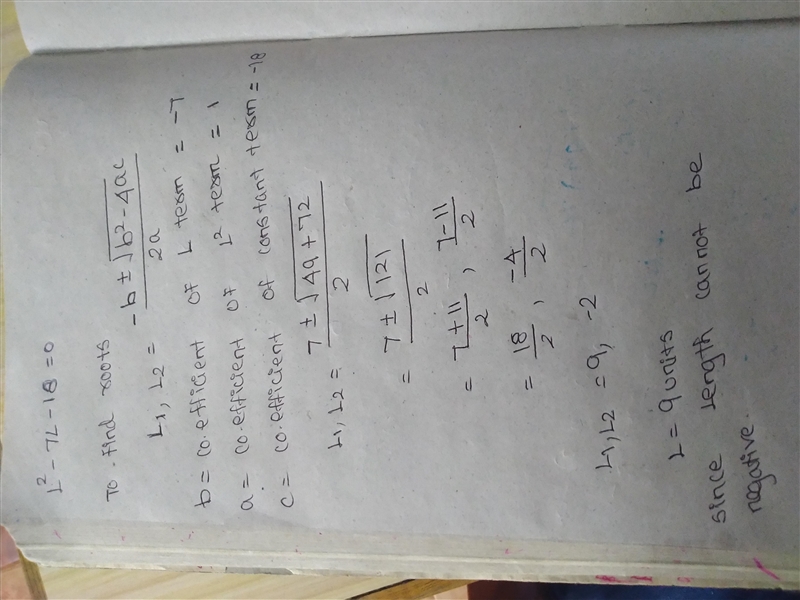 L² - 7L - 18 = 0
To find roots
L₁, L₂ = -b ± √b² - 4ac / 2a
b = co.efficient of L term = -7
a = co.efficient of L² term = 1
c = co.efficient of constant term = -18
L₁, L₂ = 7 ± √49 + 72 / 2
= 7 ± √121 / 2
= 7 + 11 / 2 , 7 - 11 / 2
= 18 / 2 , -4 / 2
L₁, L₂ = 9, -2
L = 9 units
since length cannot be
negative.